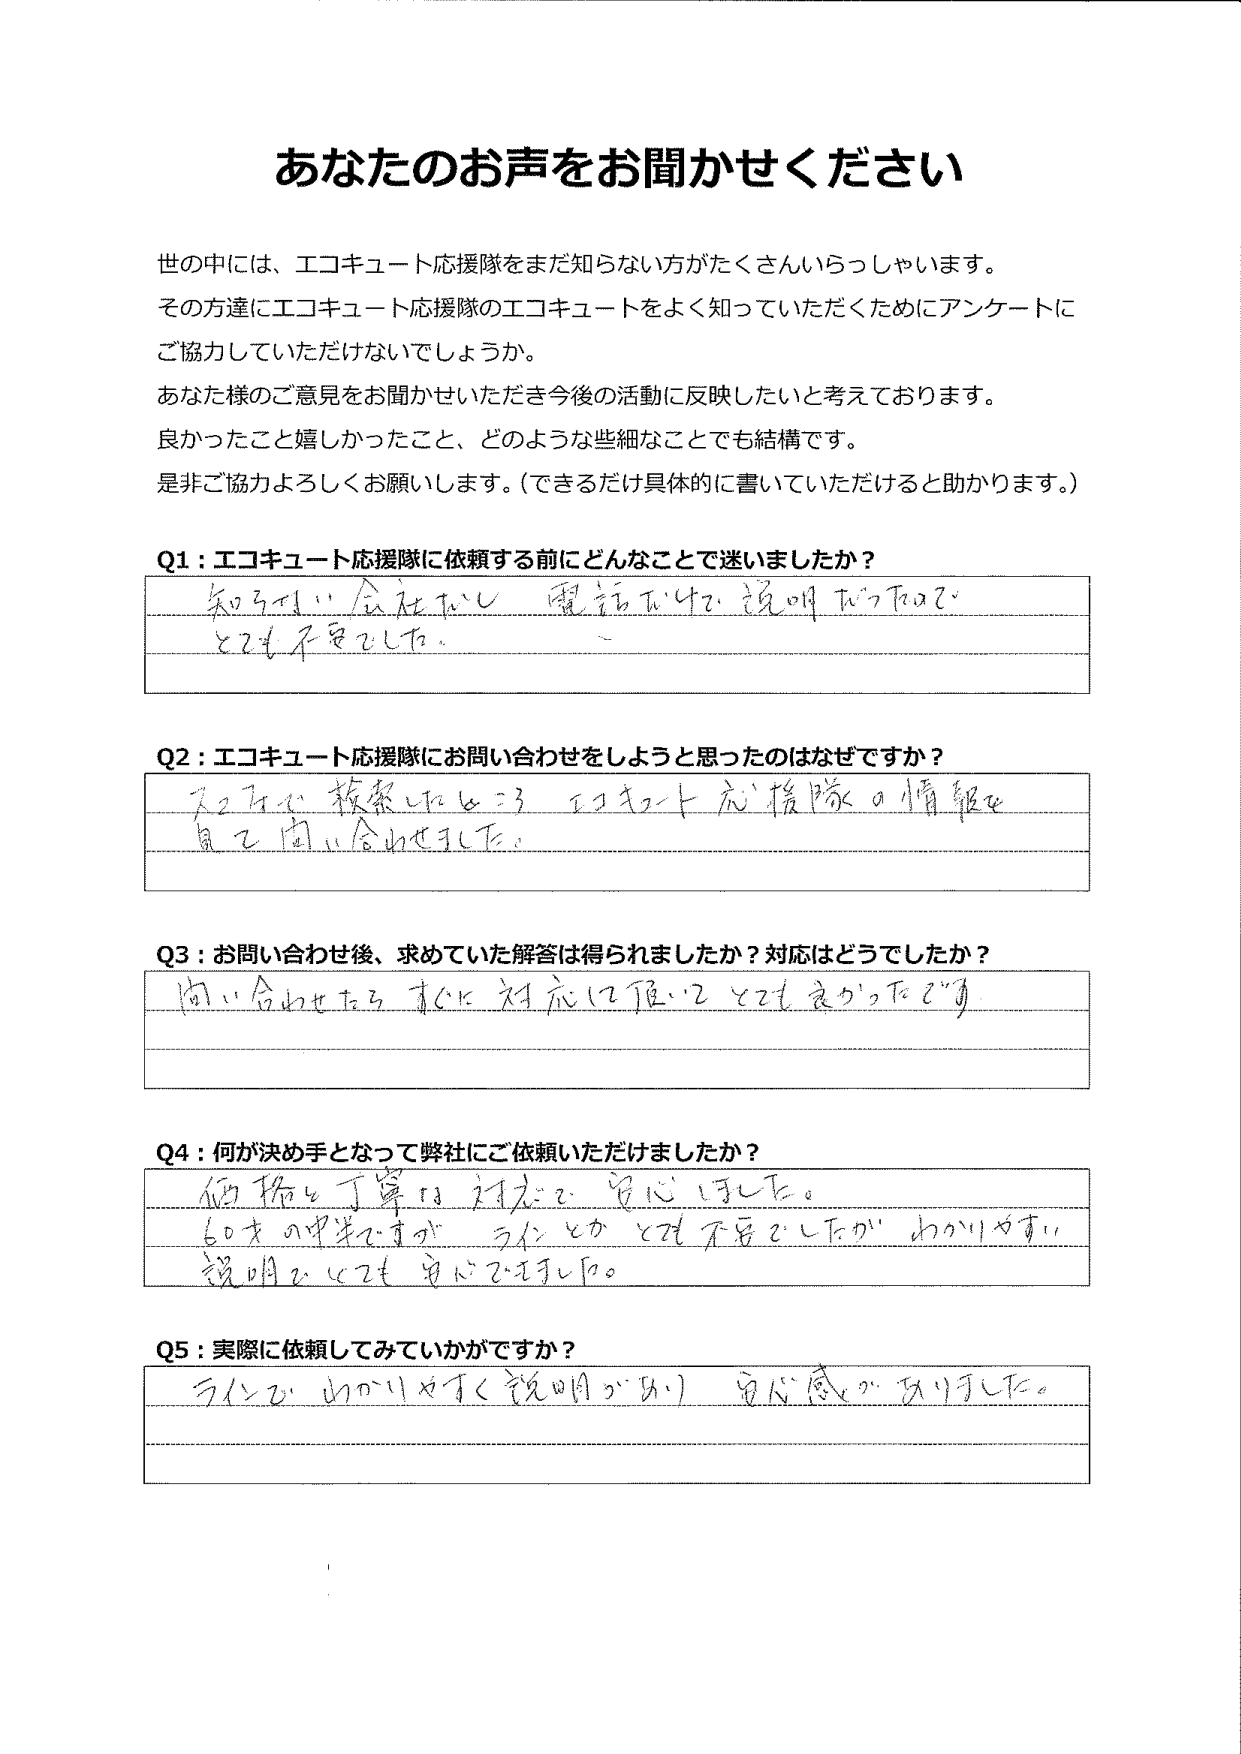 あなたのお声をお聞かせください
世の中には、エコキュート応援隊をまだ知らない方がたくさんいらっしゃいます。
その方達にエコキュート応援隊のエコキュートをよく知っていただくためにアンケートに
ご協力していただけないでしょうか。
あなた様のご意見をお聞かせいただき今後の活動に反映したいと考えております。
良かったこと嬉しかったこと、どのような些細なことでも結構です。
是非ご協力よろしくお願いします。（できるだけ具体的に書いていただけると助かります。）
Q1：エコキュート応援隊に依頼する前にどんなことで迷いましたか？
知らない会社だし 電話だけで説明だったので
とても不安でした。
Q2：エコキュート応援隊にお問い合わせをしようと思ったのはなぜですか？
スマホで検索したところ エコキュート応援隊の情報を
見て問い合わせました。
Q3：お問い合わせ後、求めていた解答は得られましたか？対応はどうでしたか？
問い合わせたらすぐに対応して頂いてとても良かったです
Q4：何が決め手となって弊社にご依頼いただけましたか？
価格と丁寧な対応で安心しました。
60才の中半ですが ラインとかとても不安でしたが わかりやすい
説明でとても安心できました。
Q5：実際に依頼してみていかがですか？
ラインでわかりやすく説明があり 安心感がありました。